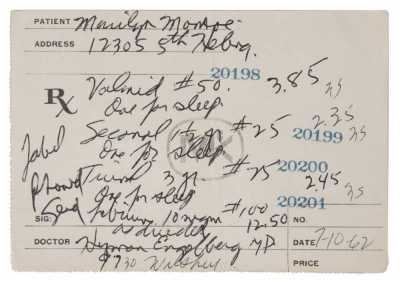 PATIENT Marilyn Monroe
ADDRESS 12305 5th Helena
20198
Rx Valmid #50. 3.85
One for sleep
Seconal 1½ gr. #25 2.35
20199
Label One for sleep
20200
Tuinal 3 gr. #25 2.45
One for sleep
20201
Send Librium 10 mgm #100
SIG: as directed 12.50 NO.
DOCTOR Hyman Engelberg MD DATE 7-10-62
9730 Wilshire PRICE